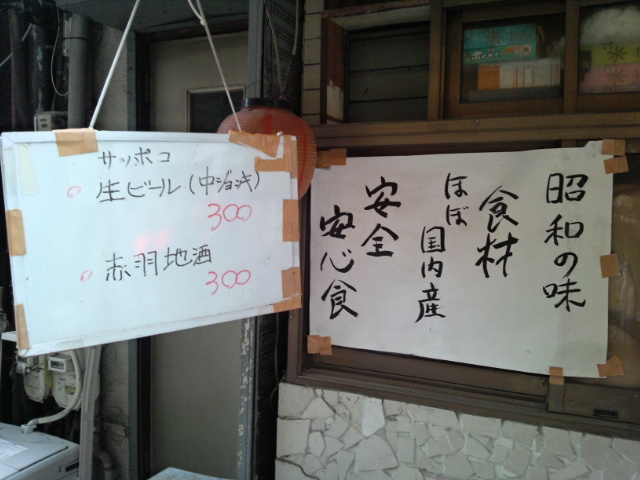 サッポロ
生ビール(中ジョッキ)
300
赤羽地酒
300
昭和の味
食材
ほぼ国内産
安全
安心食